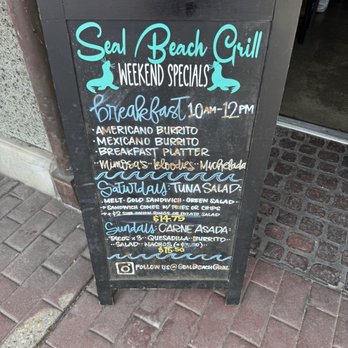 Seal Beach Grill
WEEKEND SPECIALS
Breakfast 10AM-12PM
·AMERICANO BURRITO
·MEXICANO BURRITO
·BREAKFAST PLATTER
·Mimosa's··Bloodies··Michelada
Saturdays TUNA SALAD
·MELT·COLD SANDWICH·GREEN SALAD
·SANDWICH COMES W/ FRIES OR CHIPS
+$2 SUB ONION RINGS OR POTATO SALAD
$14.75
Sundays CARNE ASADA
TACOS x 3··QUESADILLA··BURRITO
··SALAD··NACHOS
$15.50
FOLLOW US @SEALBEACHGRILL